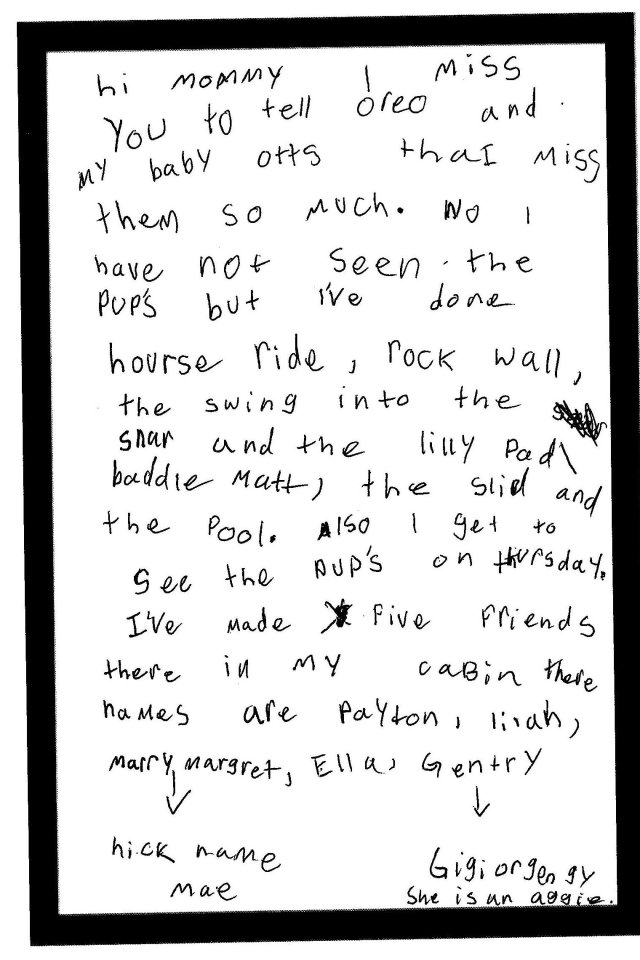 hi mommy I miss
You to tell oreo and
my baby otts thaI miss
them so much. No I
have not seen the
pup's but I've done
hourse ride, rock wall,
the swing into the
snar and the lilly pad\
baddle matt, the slid and
the pool. Also I get to
see the pup's on thursday.
I've made five friends
there in my cabin there
names are Payton, lirah,
marry margret, Ella, Gentry
nick name
mae
Gigi or gen gy
She is an aggie.